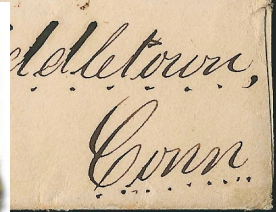 iddletown,
Conn